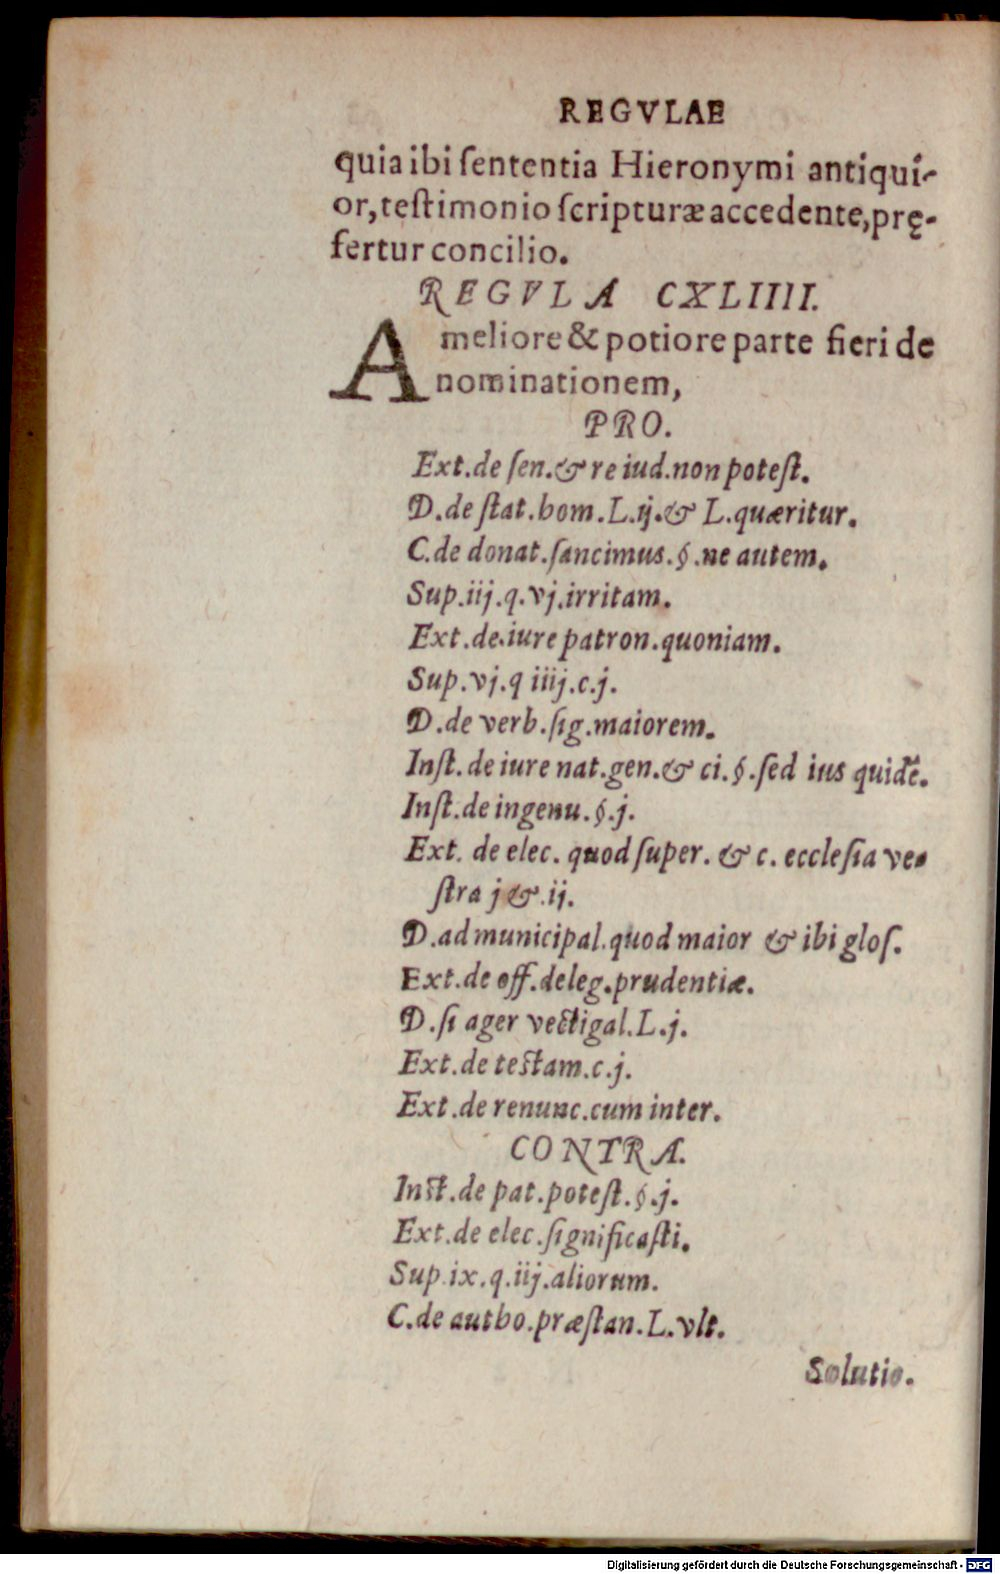 REGVLAE
quia ibi ſententia Hieronymi antiqui-
or, teſtimonio ſcripturæ accedente, prę-
fertur concilio.
REGVLA CXLIIII.
A meliore & potiore parte fieri de
nominationem,
PRO.
Ext.de ſen.& re iud.non poteſt.
D.de ſtat.hom.L.ij.& L.quæritur.
C.de donat.ſancimus.§.ne autem.
Sup.iij.q.vj.irritam.
Ext.de.iure patron.quoniam.
Sup.vj.q iiij.c.j.
D.de verb.ſig.maiorem.
Inſt.de iure nat.gen.& ci.§.ſed ius quidẽ.
Inſt.de ingenu.§.j.
Ext. de elec. quod ſuper. & c. eccleſia ve-
ſtra j &.ij.
D.ad municipal.quod maior & ibi gloſ.
Ext.de off.deleg.prudentiæ.
D.ſi ager vectigal.L.j.
Ext.de teſtam.c.j.
Ext.de renunc.cum inter.
CONTRA.
Inſt.de pat.poteſt.§.j.
Ext.de elec.ſignificaſti.
Sup.ix.q.iij.aliorum.
C.de autho.præſtan.L.vlt.
Solutio.
Digitalisierung gefördert durch die Deutsche Forschungsgemeinschaft - DFG